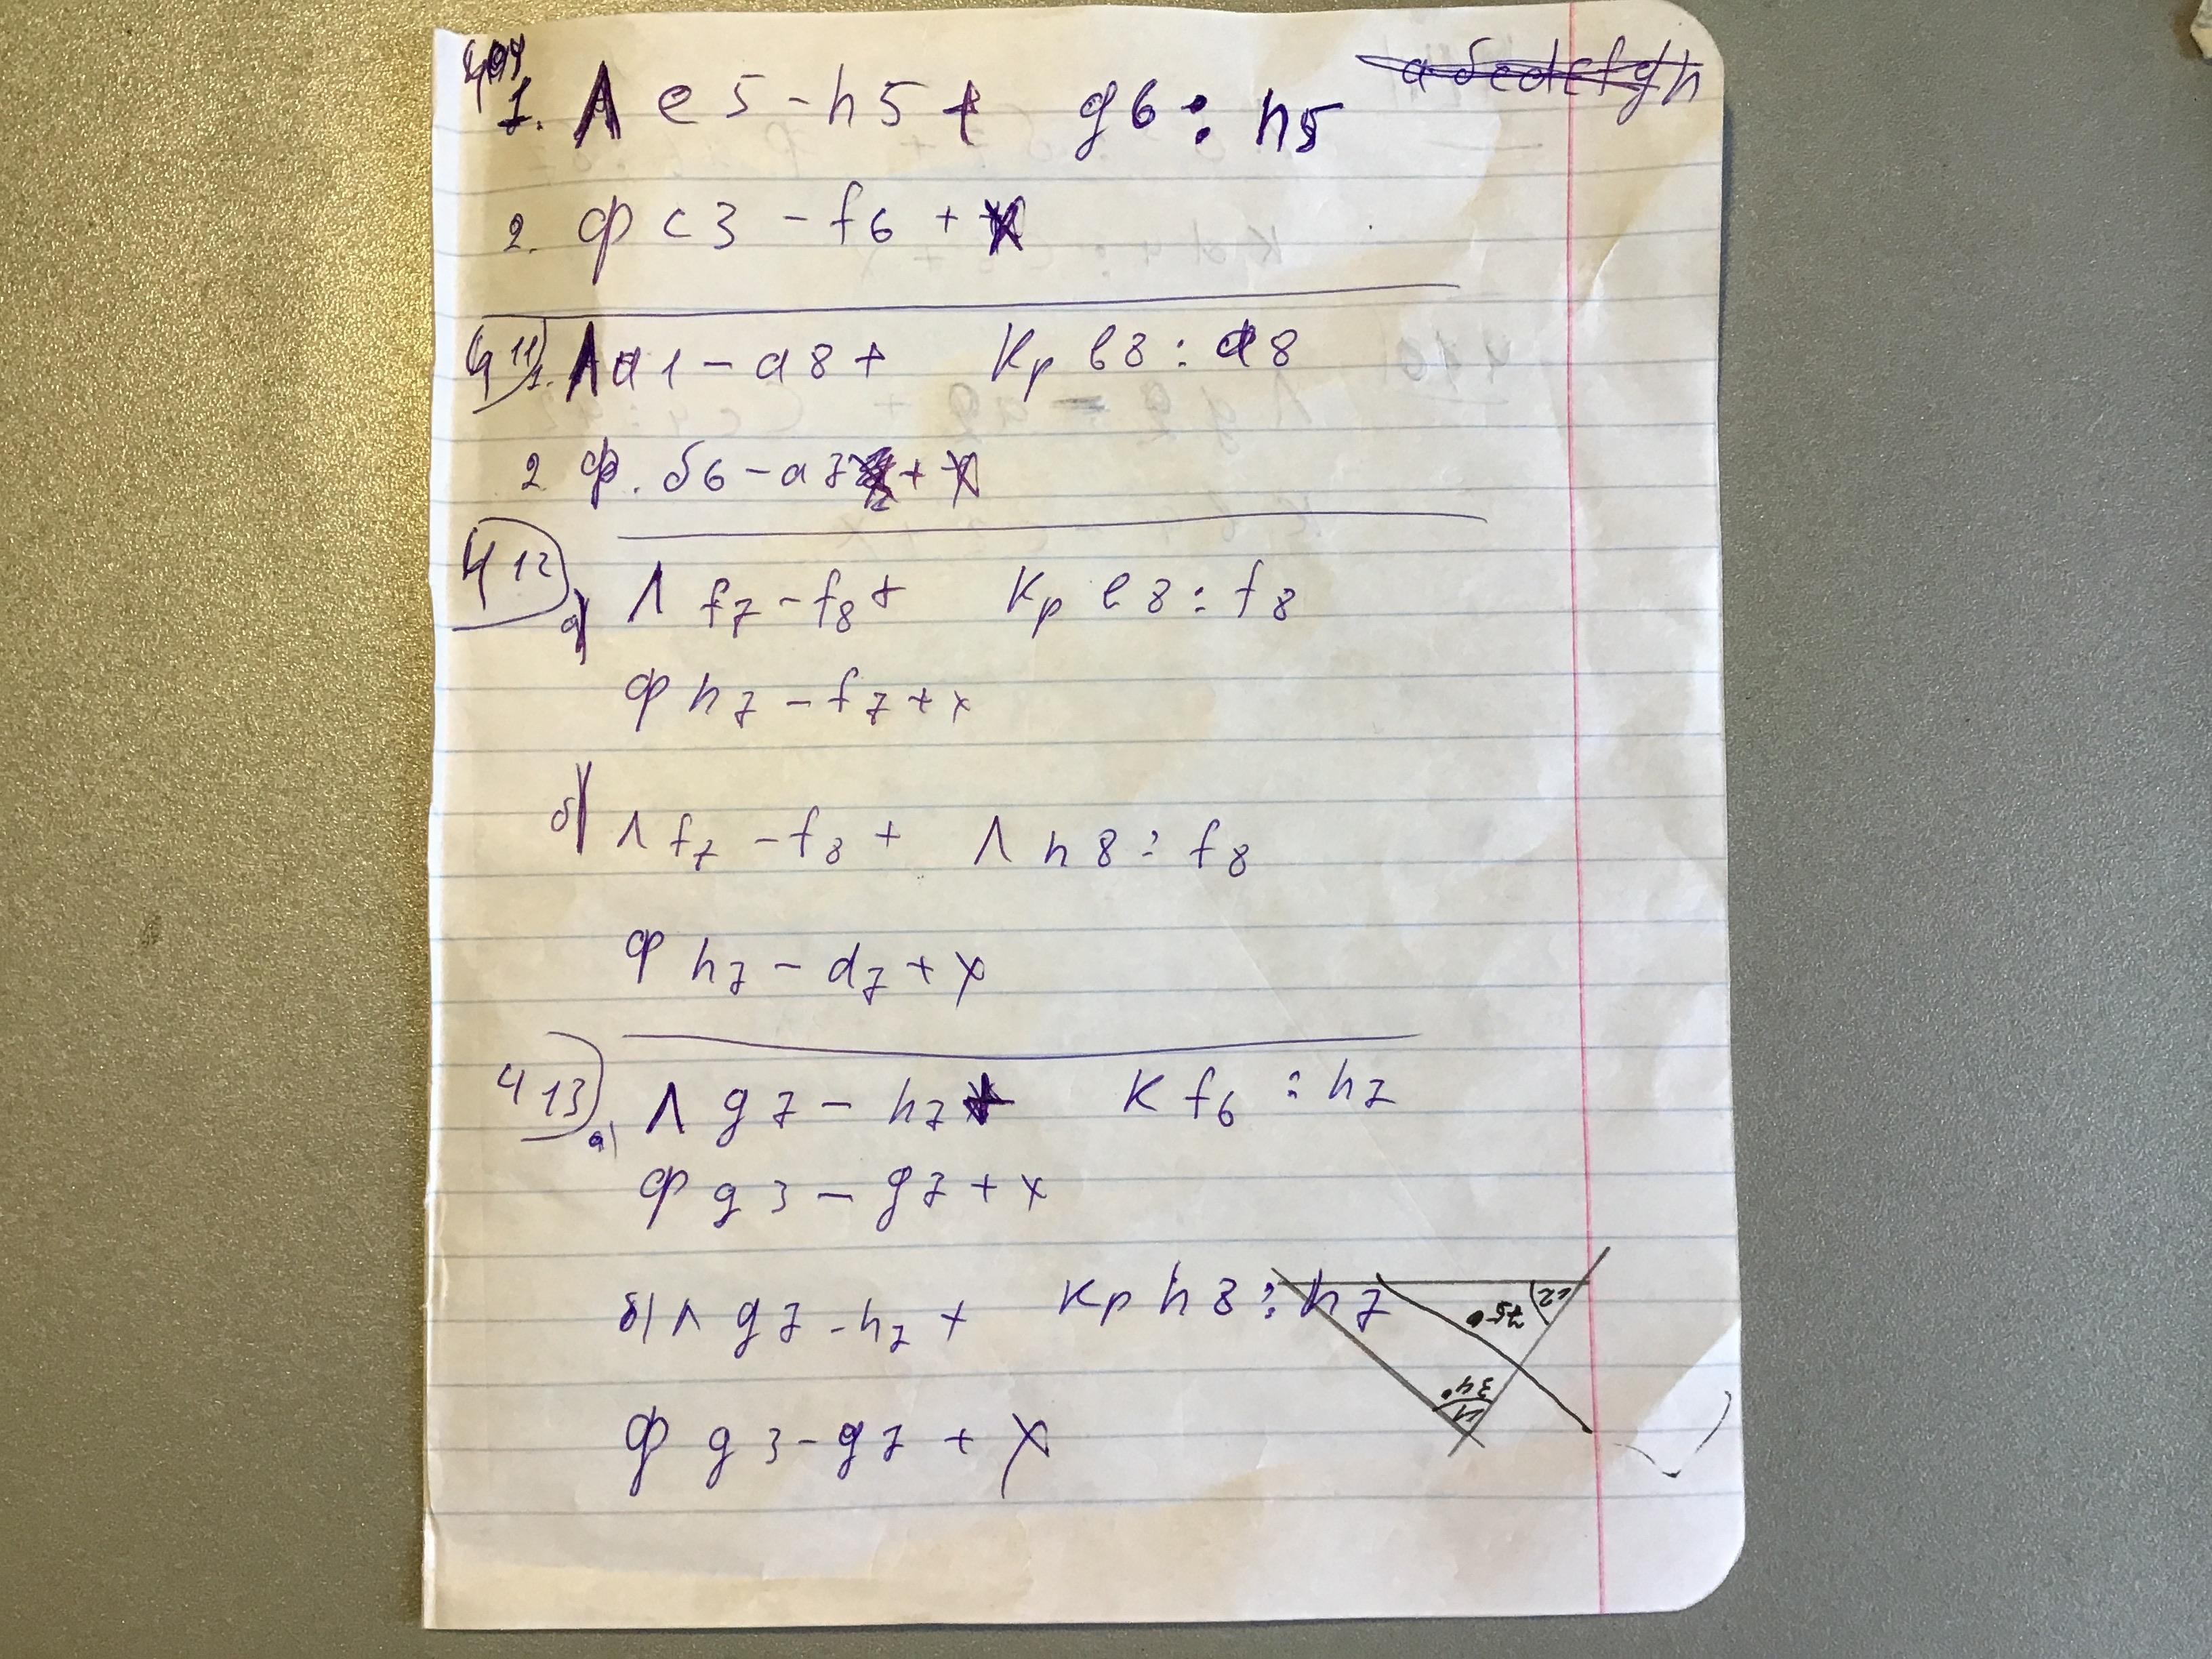 a б c d e f g h
409
1. Л e5 - h5 + g6 : h5
2. Ф c3 - f6 + x
411 1. Л a1 - a8 + Кр в8 : a8
2 Ф. б6 - a7 + x
412
а) Л f7 - f8 + Кр e8 : f8
Ф h7 - f7 + x
б) Л f7 - f8 + Л h8 : f8
Ф h7 - d7 + x
413
а) Л g7 - h7 + К f6 : h7
Ф g3 - g7 + x
б) Л g7 - h7 + Кр h8 : h7
∠2
75°
34°
∠1
Ф g3 - g7 + x